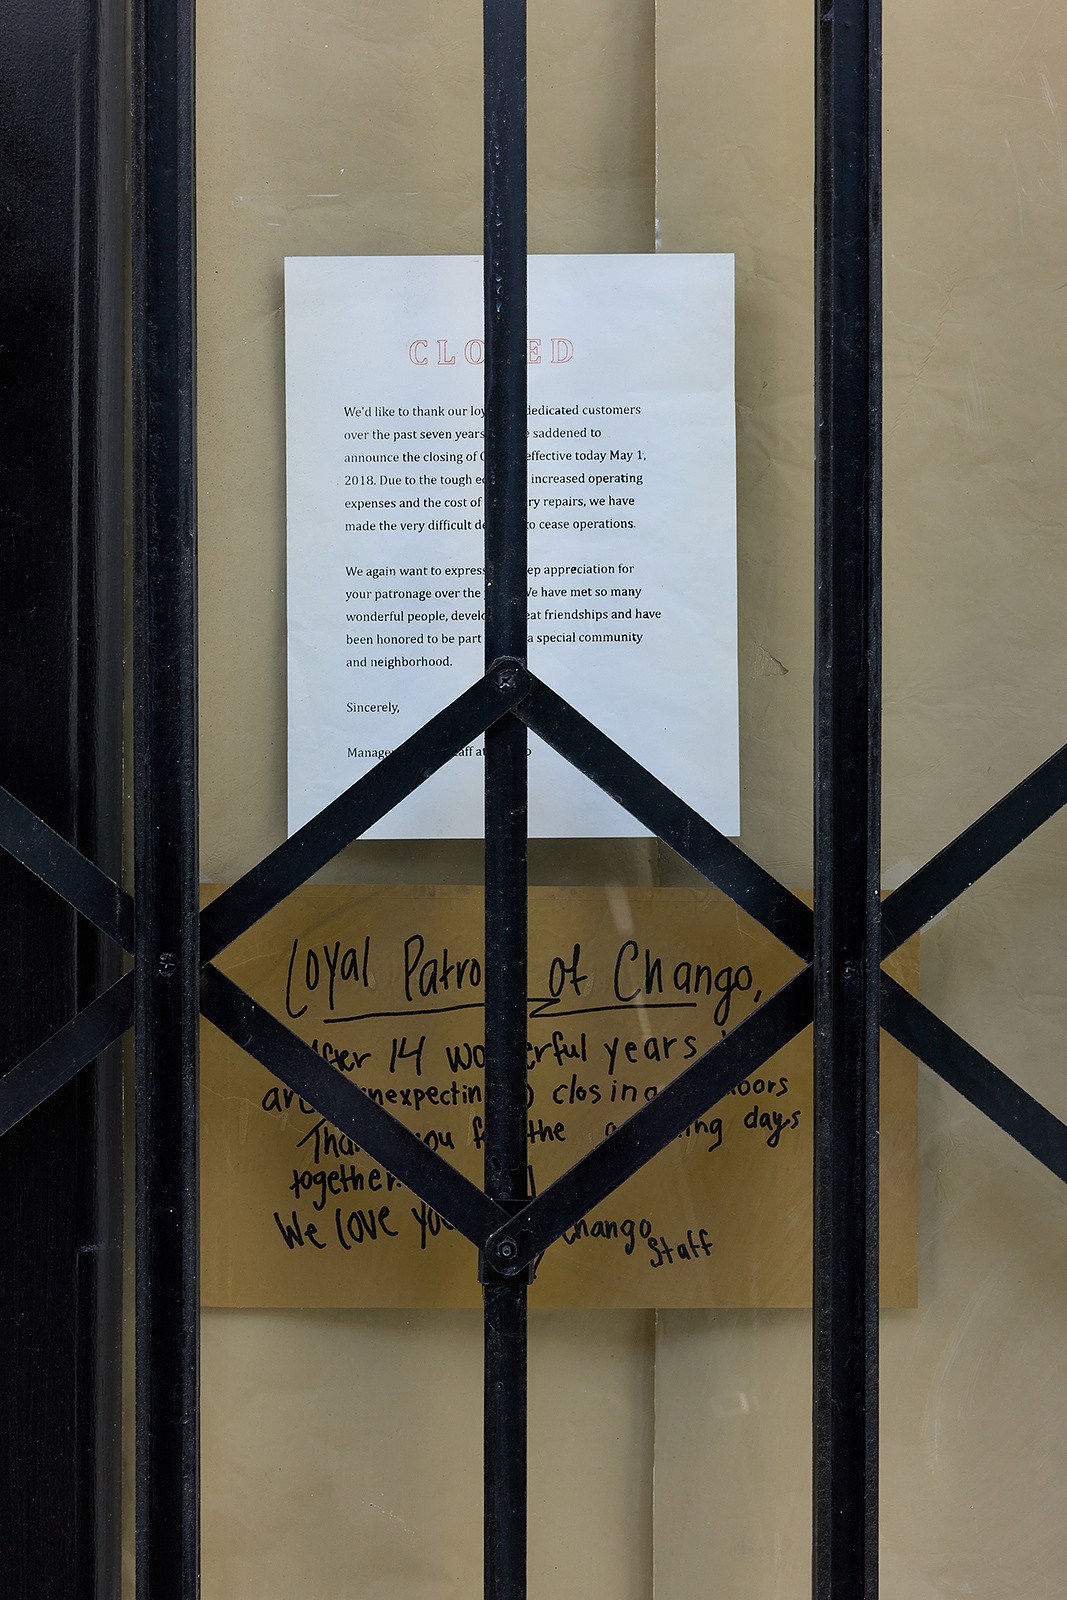 CLOSED
We'd like to thank our loyal dedicated customers
over the past seven years. saddened to
announce the closing of effective today May 1,
2018. Due to the tough increased operating
expenses and the cost of repairs, we have
made the very difficult decision to cease operations.
We again want to express deep appreciation for
your patronage over the We have met so many
wonderful people, developed great friendships and have
been honored to be part a special community
and neighborhood.
Sincerely,
Management staff at Chango
Loyal Patrons of Chango,
After 14 wonderful years
are closing doors
Thank you for the days
together.
We love you Chango
Staff